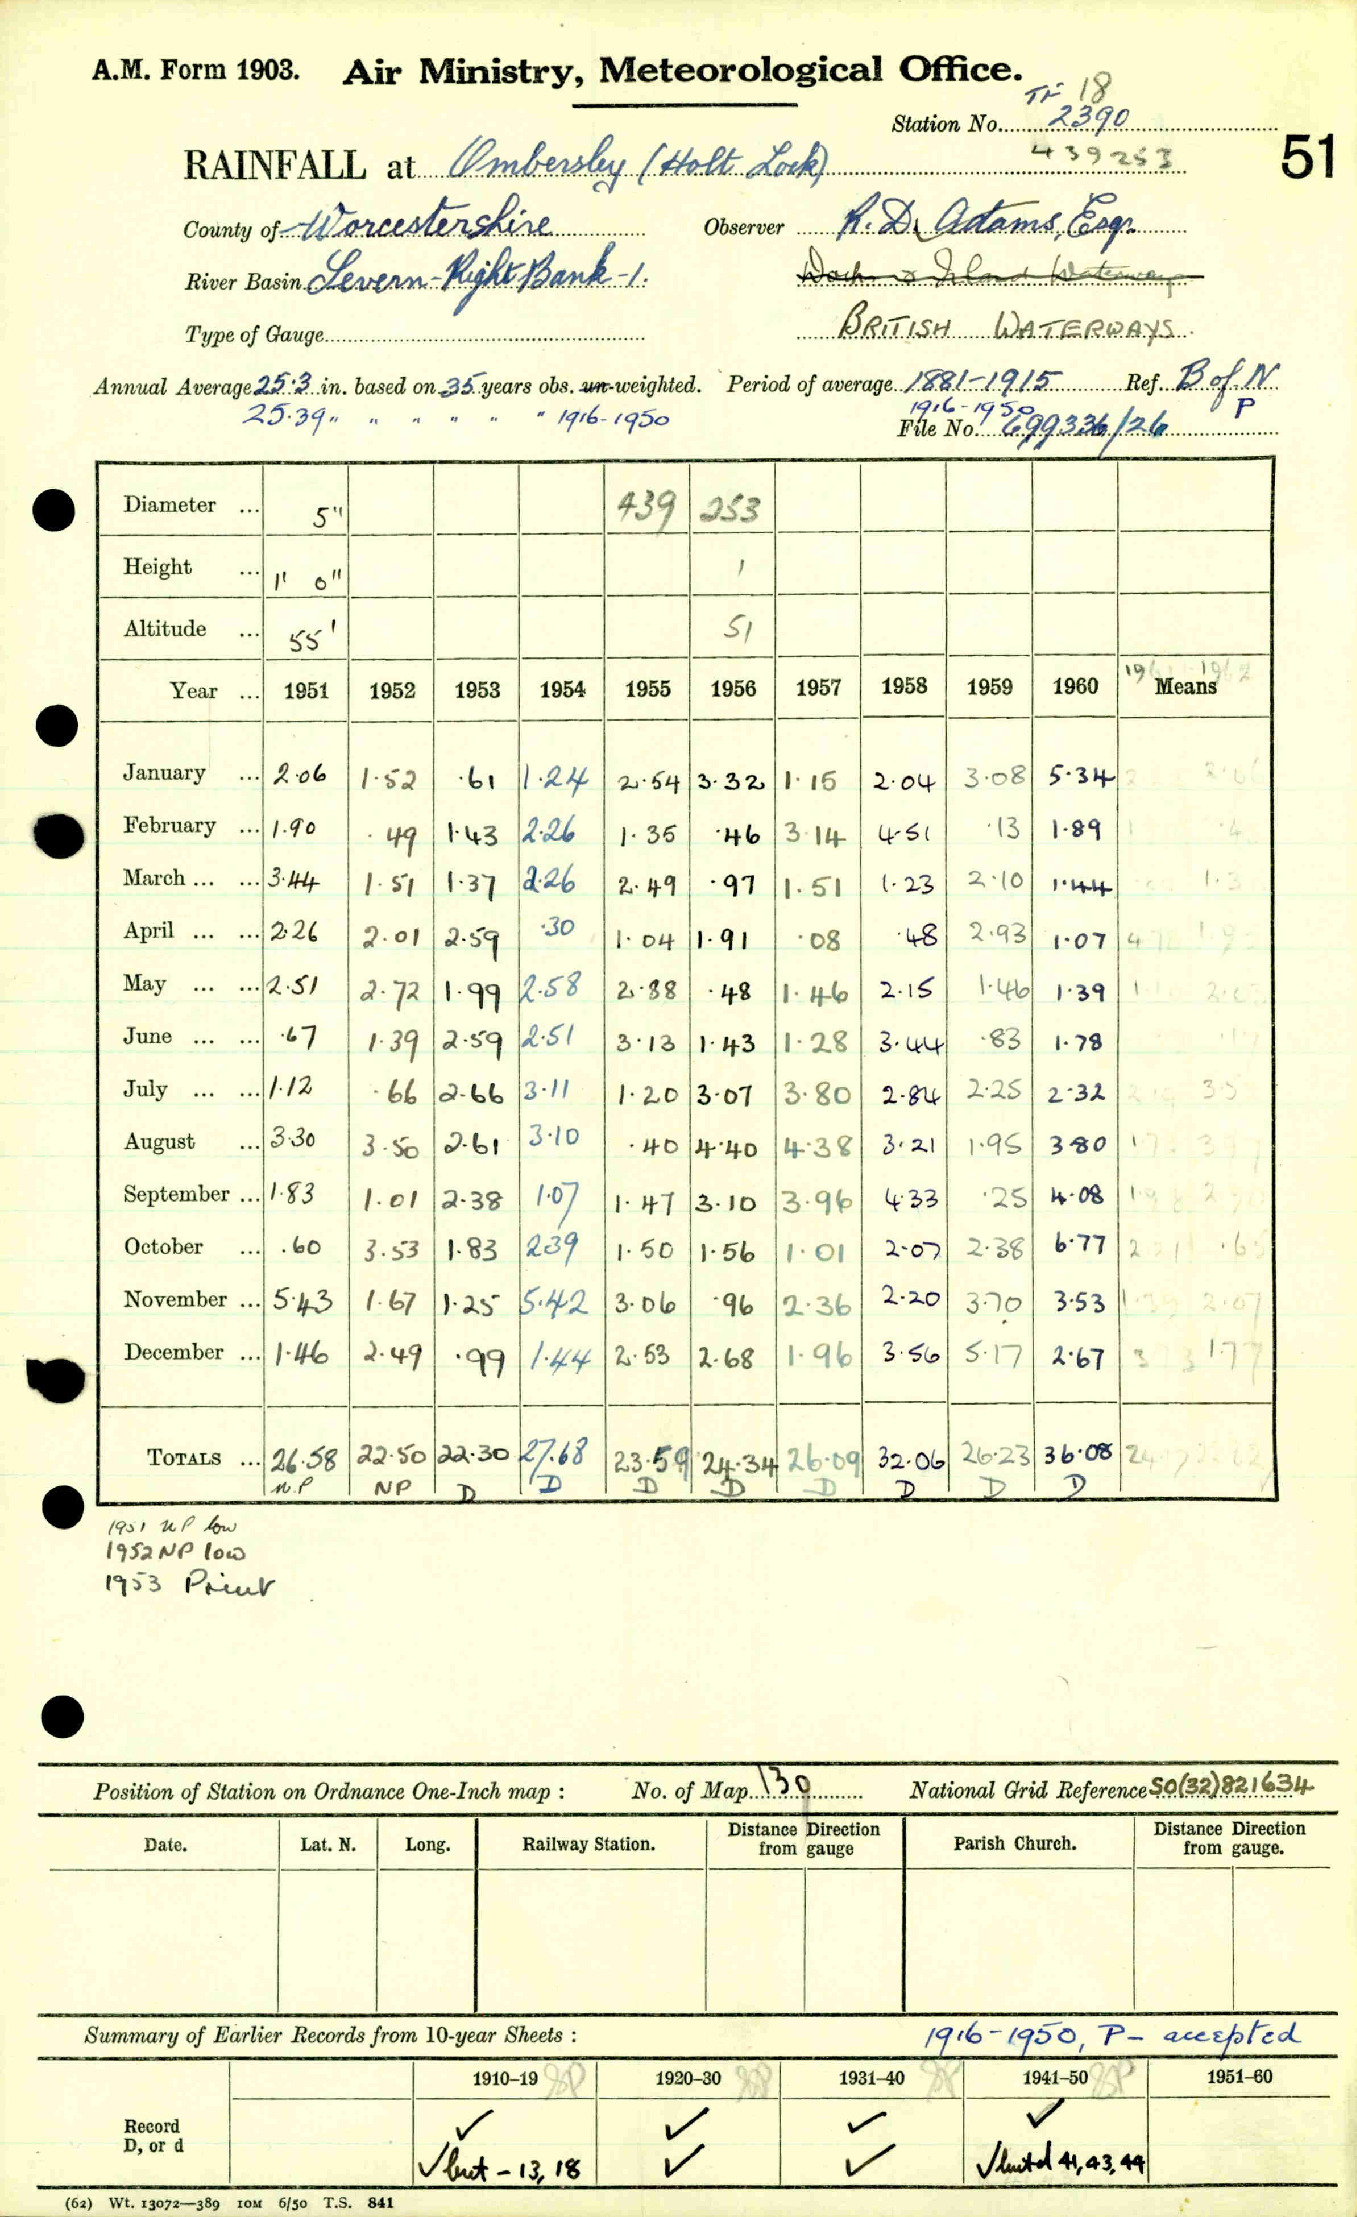 A.M. Form 1903. Air Ministry, Meteorological Office.
18
Station No. 2390
439253
51
RAINFALL at Ombersley (Holt Lock)
County of Worcestershire Observer R. D. Adams, Esqr.
River Basin Severn-Right Bank-1.
Type of Gauge BRITISH WATERWAYS
Annual Average 25.3 in. based on 35 years obs. un-weighted. Period of average 1881-1915 Ref. B of N
25.39 " " " " " " 1916-1950 1916-1950 P
File No. 699336/26
Diameter ... 5" 439 253
Height ... 1' 0" 1
Altitude ... 55' 51
Year ... 1951 1952 1953 1954 1955 1956 1957 1958 1959 1960 Means
January ... 2.06 1.52 .61 1.24 2.54 3.32 1.15 2.04 3.08 5.34
February ... 1.90 .49 1.43 2.26 1.35 .46 3.14 4.51 .13 1.89
March ... ... 3.44 1.51 1.37 2.26 2.49 .97 1.51 1.23 2.10 1.44
April ... ... 2.26 2.01 2.59 .30 1.04 1.91 .08 .48 2.93 1.07
May ... ... 2.51 2.72 1.99 2.58 2.88 .48 1.46 2.15 1.46 1.39
June ... ... .67 1.39 2.59 2.51 3.13 1.43 1.28 3.44 .83 1.78
July ... ... 1.12 .66 2.66 3.11 1.20 3.07 3.80 2.84 2.25 2.32
August ... 3.30 3.50 2.61 3.10 .40 4.40 4.38 3.21 1.95 3.80
September ... 1.83 1.01 2.38 1.07 1.47 3.10 3.96 4.33 .25 4.08
October ... .60 3.53 1.83 2.39 1.50 1.56 1.01 2.07 2.38 6.77
November ... 5.43 1.67 1.25 5.42 3.06 .96 2.36 2.20 3.70 3.53
December ... 1.46 2.49 .99 1.44 2.53 2.68 1.96 3.56 5.17 2.67 1.77
TOTALS ... 26.58 22.50 22.30 27.68 23.59 24.34 26.09 32.06 26.23 36.08
N.P NP D D D D D D D D
1951 NP low
1952 NP low
1953 Print
Position of Station on Ordnance One-Inch map : No. of Map 130 National Grid Reference SO(32)821634
Date. Lat. N. Long. Railway Station. Distance from Direction gauge Parish Church. Distance from Direction gauge.
Summary of Earlier Records from 10-year Sheets : 1916-1950, P- accepted
1910-19 1920-30 1931-40 1941-50 1951-60
Record ✓ ✓ ✓ ✓
D, or d ✓ but - 13, 18 ✓ ✓ ✓ but d 41, 43, 44
(62) Wt. 13072—389 10M 6/50 T.S. 841